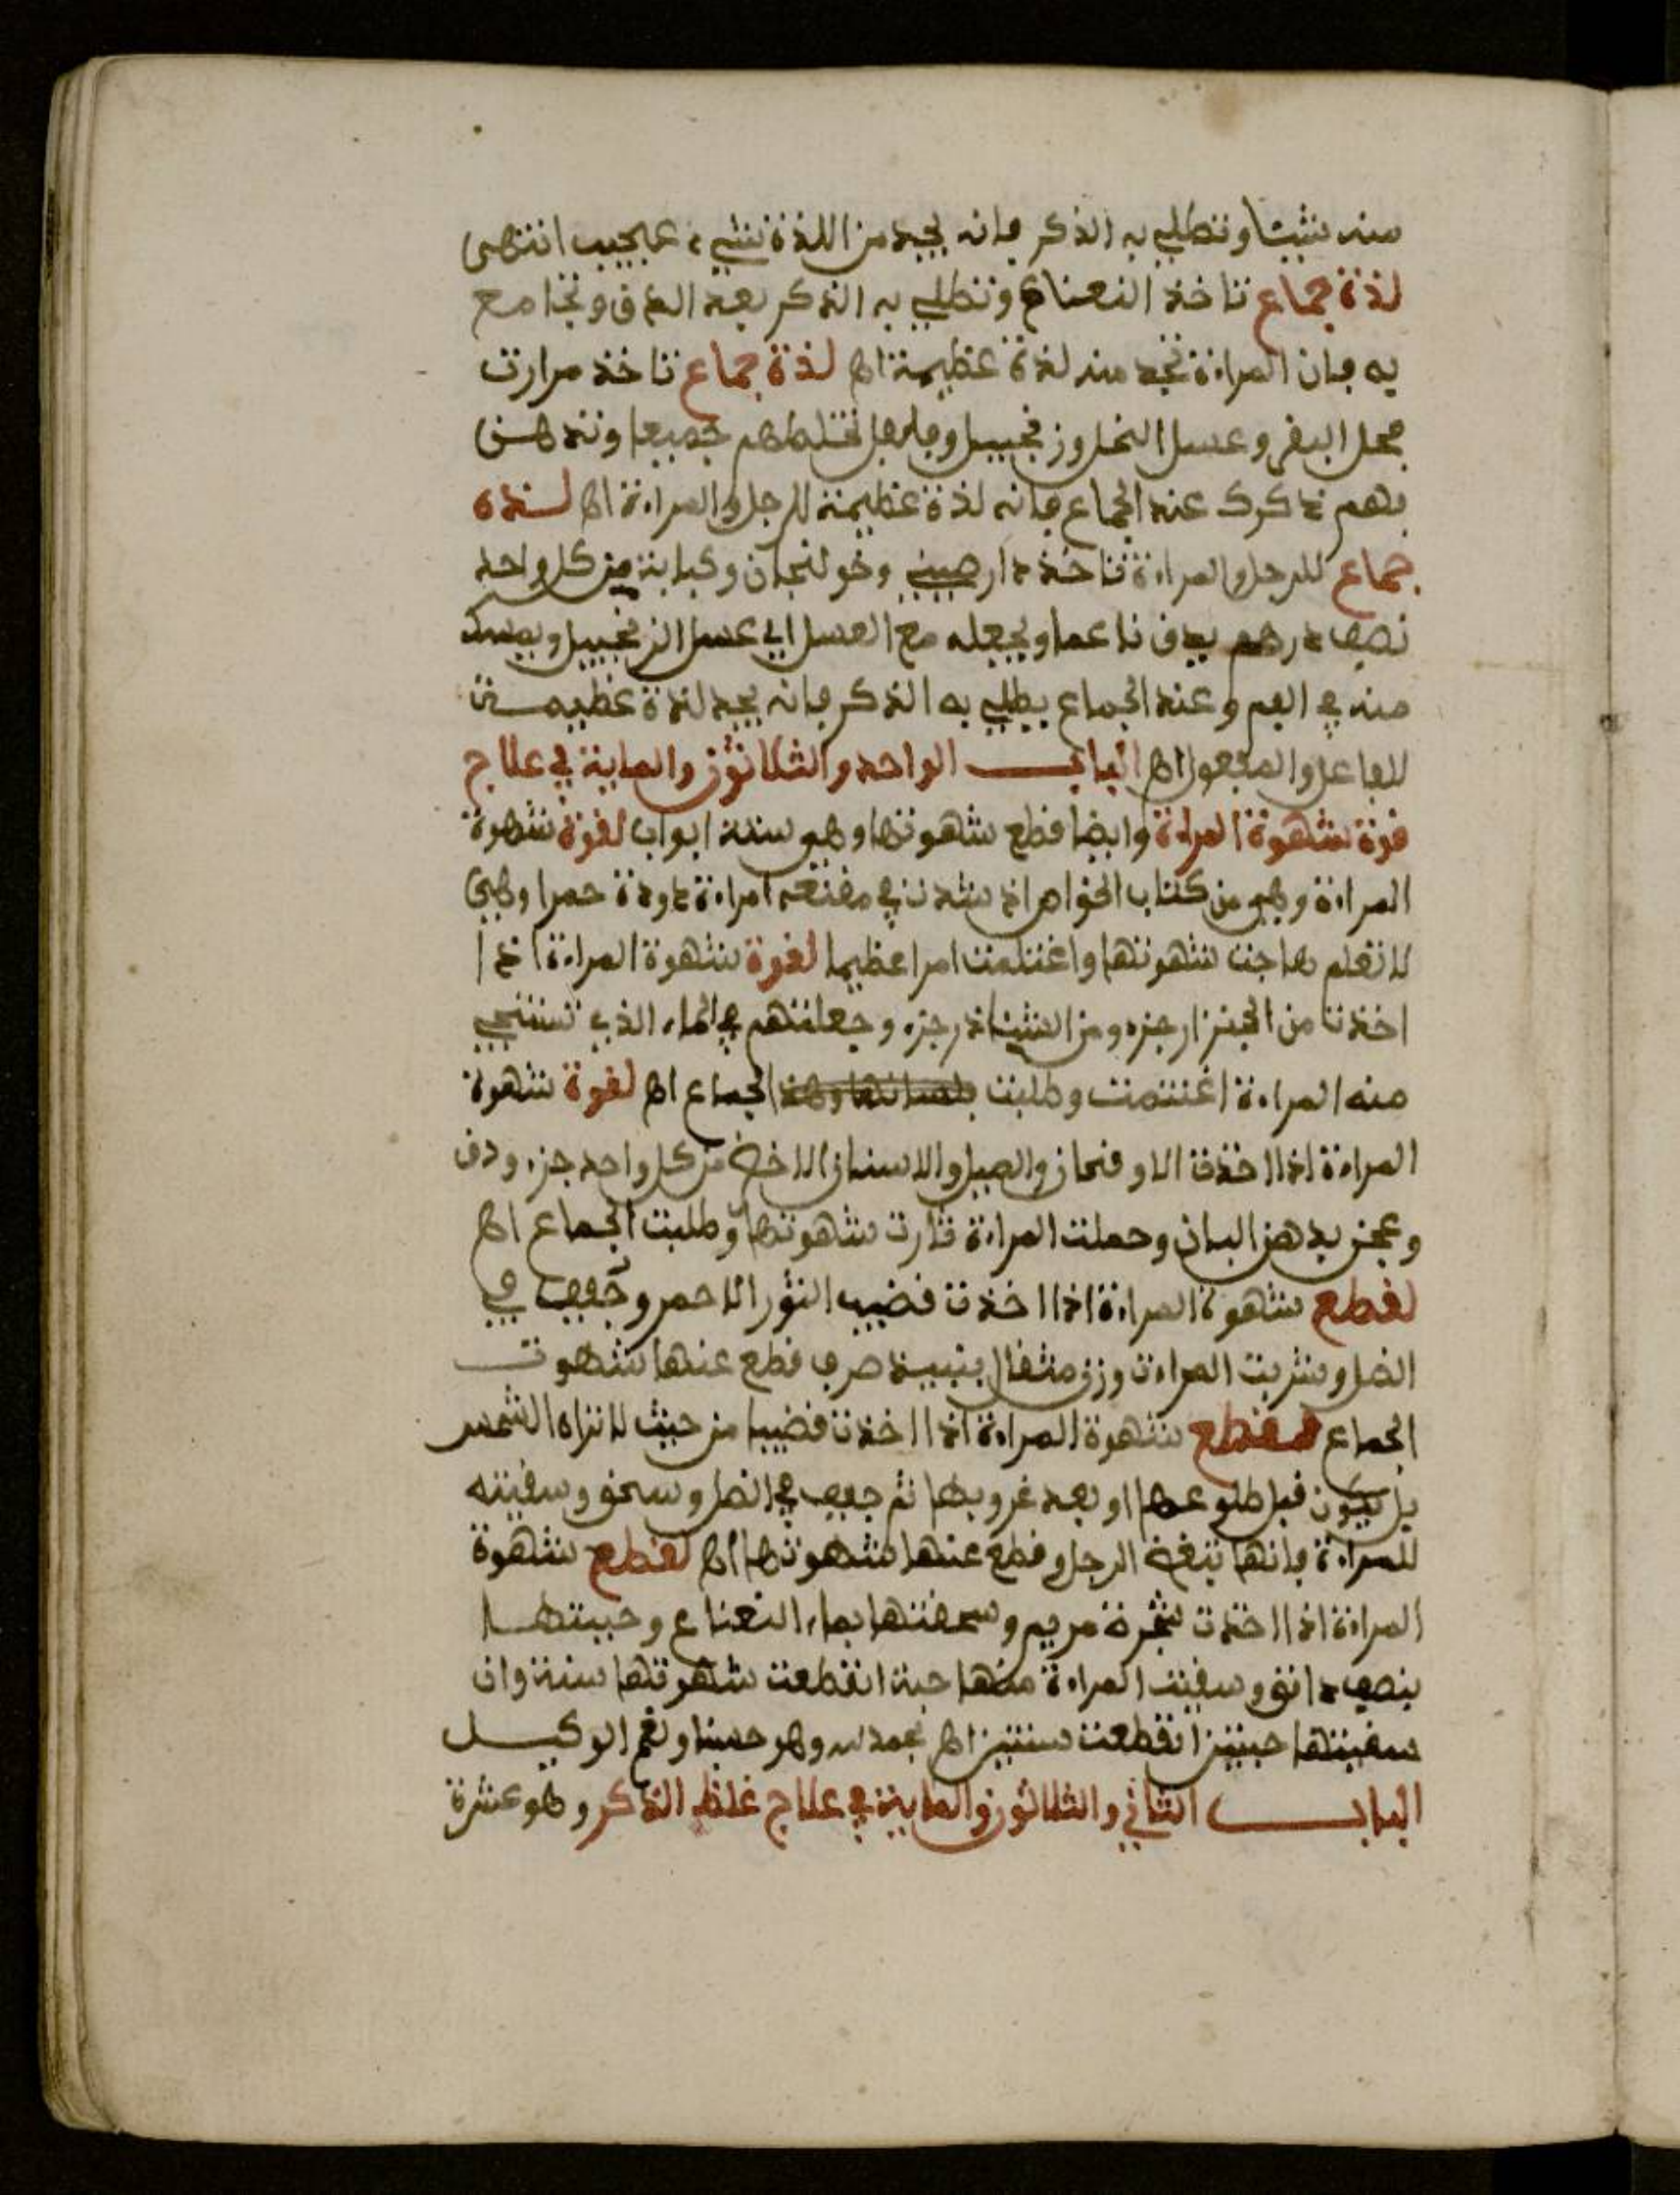 منه شيئا وتطلي به الذكر فانه يجد من اللذة شيء عجيب انتهى
لذة جماع تاخذ النعناع وتطلي به الذكر بعد الدق وتجامع
به فان المراءة تجد منه لذة عظيمة اه لذة جماع تاخذ مرارت
فحل البقر وعسل النحل وزنجبيل وفلفل تخلطهم جميعا وتدهن
بهم ذكرك عند الجماع فانه لذة عظيمة للرجل والمراءة اه لذة
جماع للرجل والمراءة تاخذ دار صيني وخولنجان وكبابة من كل واحد
نصف درهم يدق ناعما ويجعله مع العسل اي عسل الزنجبيل ويمسك
منه في الفم وعند الجماع يطلي به الذكر فانه يجد لذة عظيمة
للفاعل والمفعول اه الباب الواحد والثلاثون والماية في علاج
قوة شهوة المراءة وايضا قطع شهوتها وهو ستة ابواب لقوة شهوة
المراءة وهي من كتاب الخواص اذ شدت في مقنعه امراءة دودة حمرا وهي
لا تعلم هاجت شهوتها واغتلمت امرا عظيما لقوة شهوة المراءة اذا
اخذت من الجنزار جزء ومن النشادر جزء وجعلتهم في الماء الذي تستنجي
منه المراءة اغتنمت وطلبت الجماع اه لقوة شهوة
المراءة اذا اخذت الاوقحان والصبل والاسنان الاخضر من كل واحد جزء ودق
وعجن بدهن البان وحملت المراءة ثارت شهوتها وطلبت الجماع اه
لقطع شهوة المراءة اذا اخذت قضيب الثور الاحمر وجفف في
الظل وشربت المراءت وزن مثقال بنبيذ صرف قطع عنها شهوت
الجماع لقطع شهوة المراءة اذا اخذت قضيبا من حيث لا تراه الشمس
بل يكون قبل طلوعها او بعد غروبها ثم جفف في الظل وسحق وسقيته
للمراءة فانها تبغض الرجل وقطع عنها شهوتها اه لقطع شهوة
المراءة اذا اخذت شجرة مريم وسحقتها بماء النعناع وحببتها
بنصف دانق وسقيت المراءة منها حبة انقطعت شهوتها سنة وان
سقيتها حبتين انقطعت سنتين اه بحمد الله وهو حسبنا ونعم الوكيل
الباب الثاني والثلاثون والماية في علاج غلظ الذكر وهو عشرة